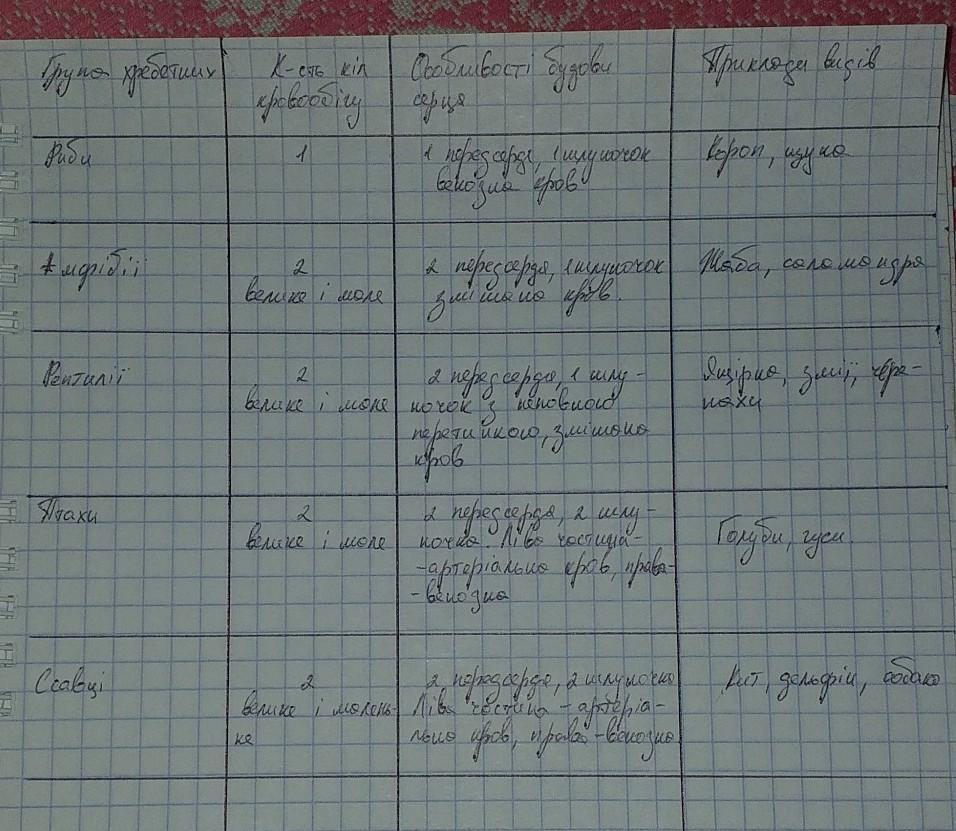 Група хребетних
К-сть кіл
кровообігу
Особливості будови
серця
Приклади видів
Риби
1
1 передсердя, 1 шлуночок
венозна кров
Короп, щука
Амфібії
2
велике і мале
2 передсердя, 1 шлуночок
змішана кров.
Жаба, саламандра
Рептилії
2
велике і мале
2 передсердя, 1 шлу-
ночок з неповною
перетинкою, змішана
кров
Ящірка, змії, чере-
пахи
Птахи
2
велике і мале
2 передсердя, 2 шлу-
ночка. Ліва частина-
-артеріальна кров, права-
-венозна
Голуби, гуси.
Ссавці
2
велике і малень-
ке
2 передсердя, 2 шлуночка
Ліва частина - артеріа-
льна кров, права -венозна
Кит, дельфін, собака